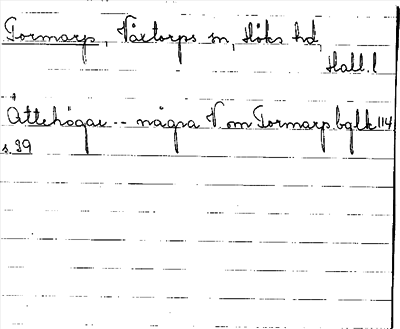 Tormarp, Vårtorps sn, Höks hd,
Hall. l
Ättehögar -- några V om Tormarp bglk 114
s. 99